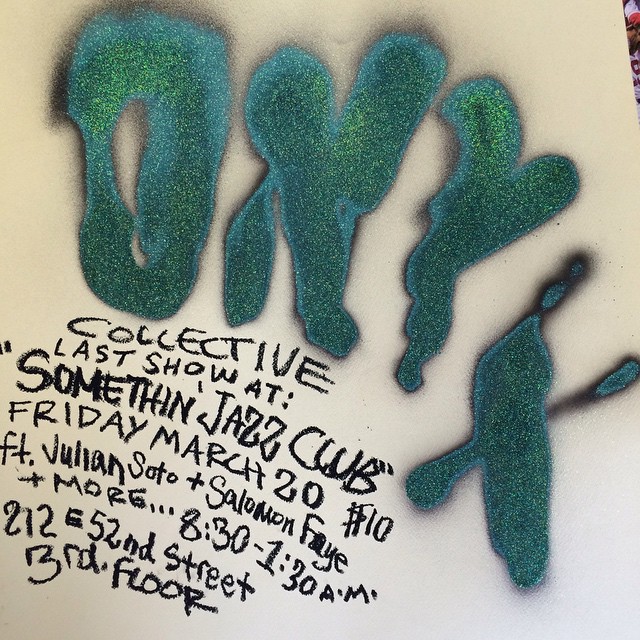 ONYX
COLLECTIVE
LAST SHOW AT:
"SOMETHIN' JAZZ CLUB"
FRIDAY MARCH 20 #10
ft. Julian Soto + Salomon Faye
+ MORE... 8:30-1:30 A.M.
212 E 52nd Street
3rd. FLOOR